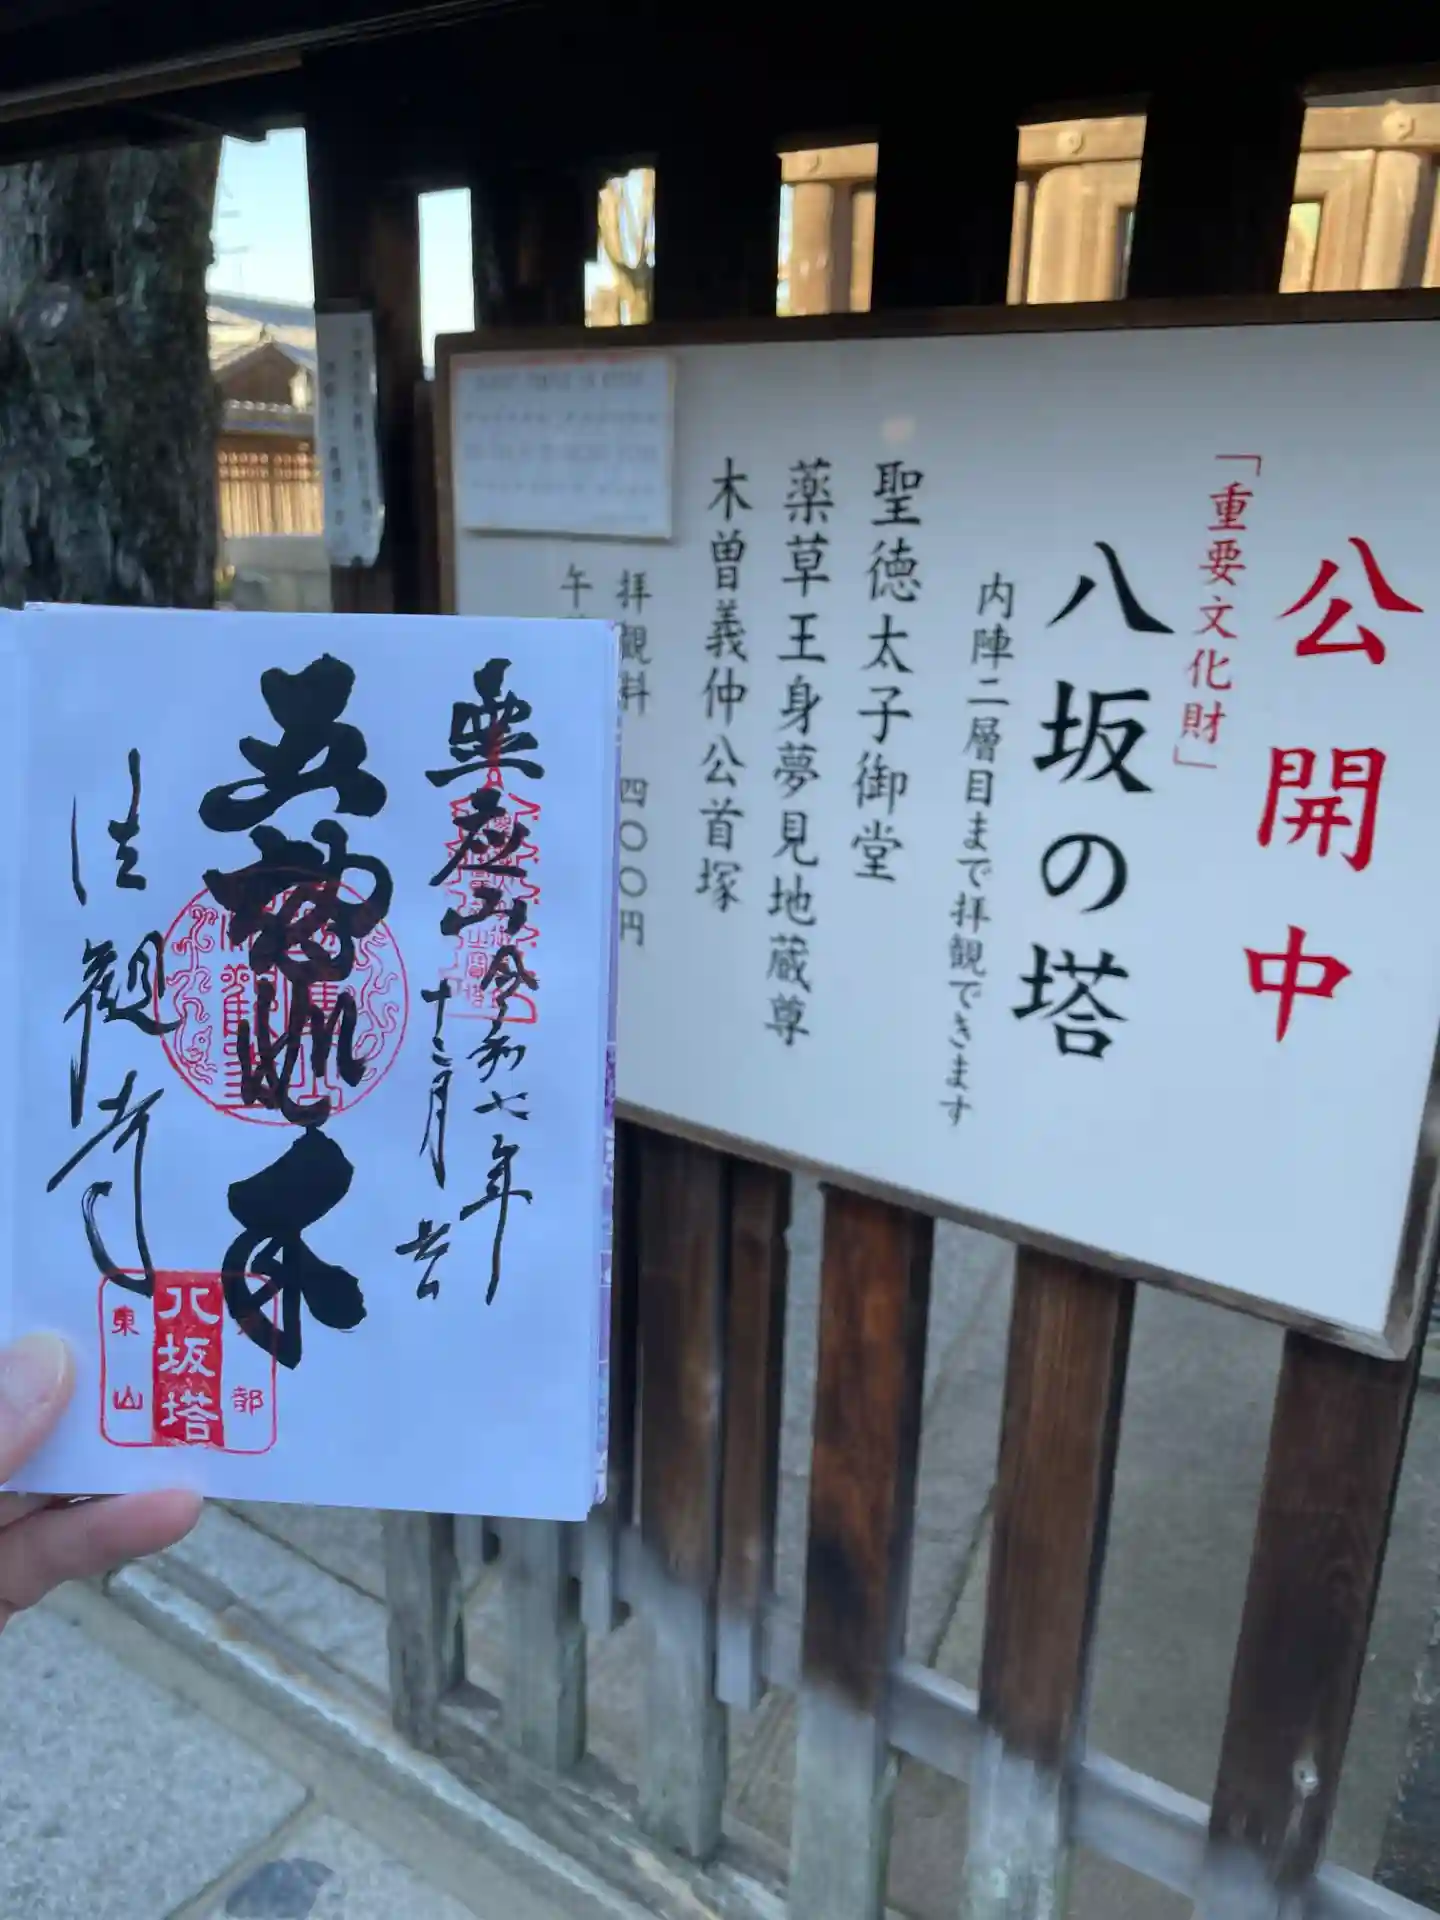 公開中
「重要文化財」
八坂の塔
内陣二層目まで拝観できます
聖徳太子御堂
薬草王身夢見地蔵尊
木曽義仲公首塚
拝観料 四〇〇円
午
霊应山
令和七年
十二月
五智如来
法観寺
八坂塔
東山
都